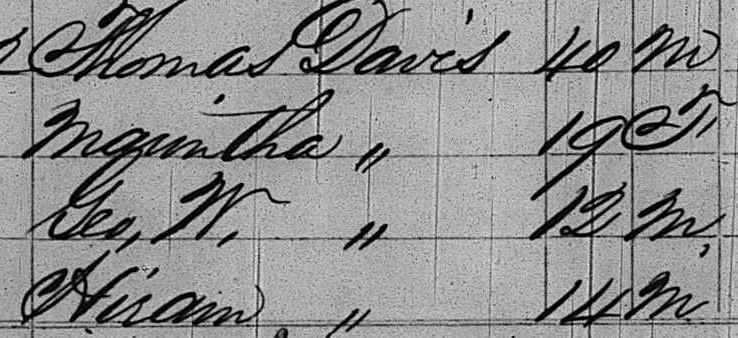 Thomas Davis 40 M
" 19 F
Geo, W, " 12 M,
Hiram " 14 M